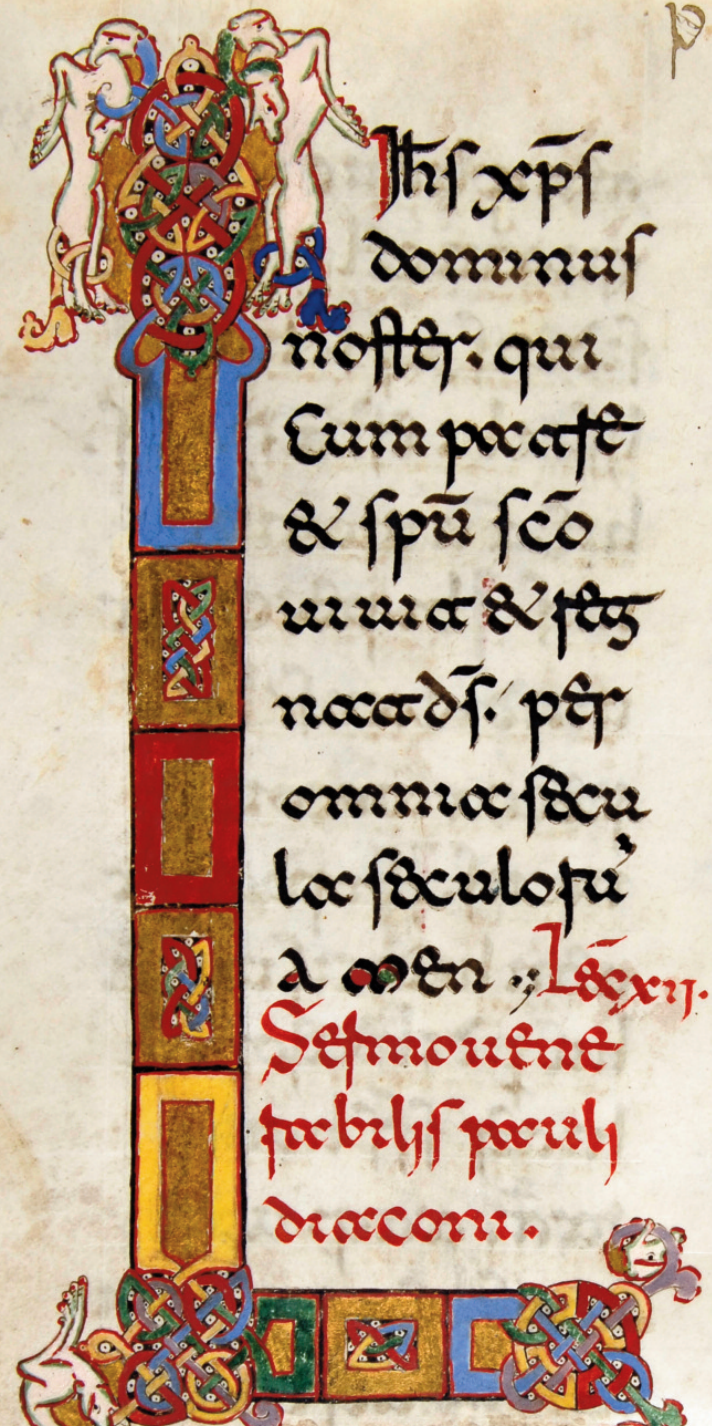 Ihs xp̄s
dominus
noster. qui
Cum patre
& spū scō
uiuit & reg
nat d̄s. per
omnia secu
la seculorū
amen. Lec̄ xij.
Sermo uene
rabilis pauli
diaconi.